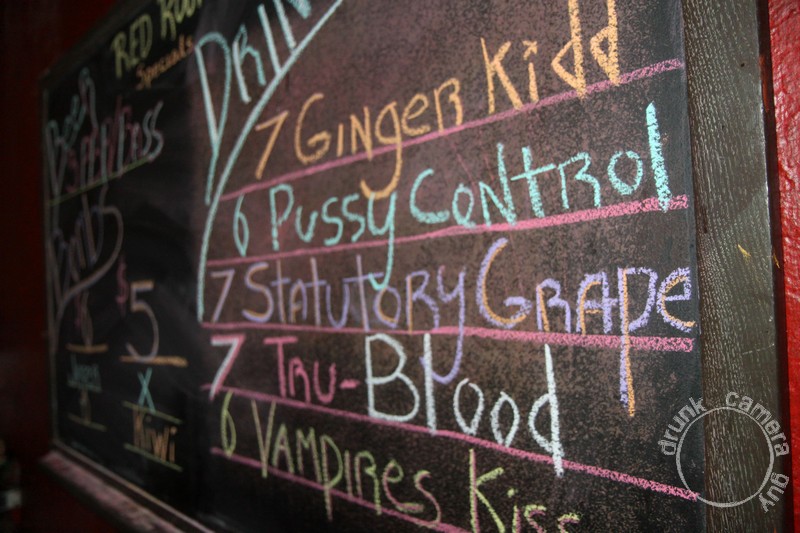 RED ROO
Specials
DRIN
7 GingeR Kidd
6 Pussy Control
7 Statutory Grape
7 Tru-Blood
6 Vampires Kiss
Beer
Bomb
$6
$5
X
Kiwi
drunk camera guy